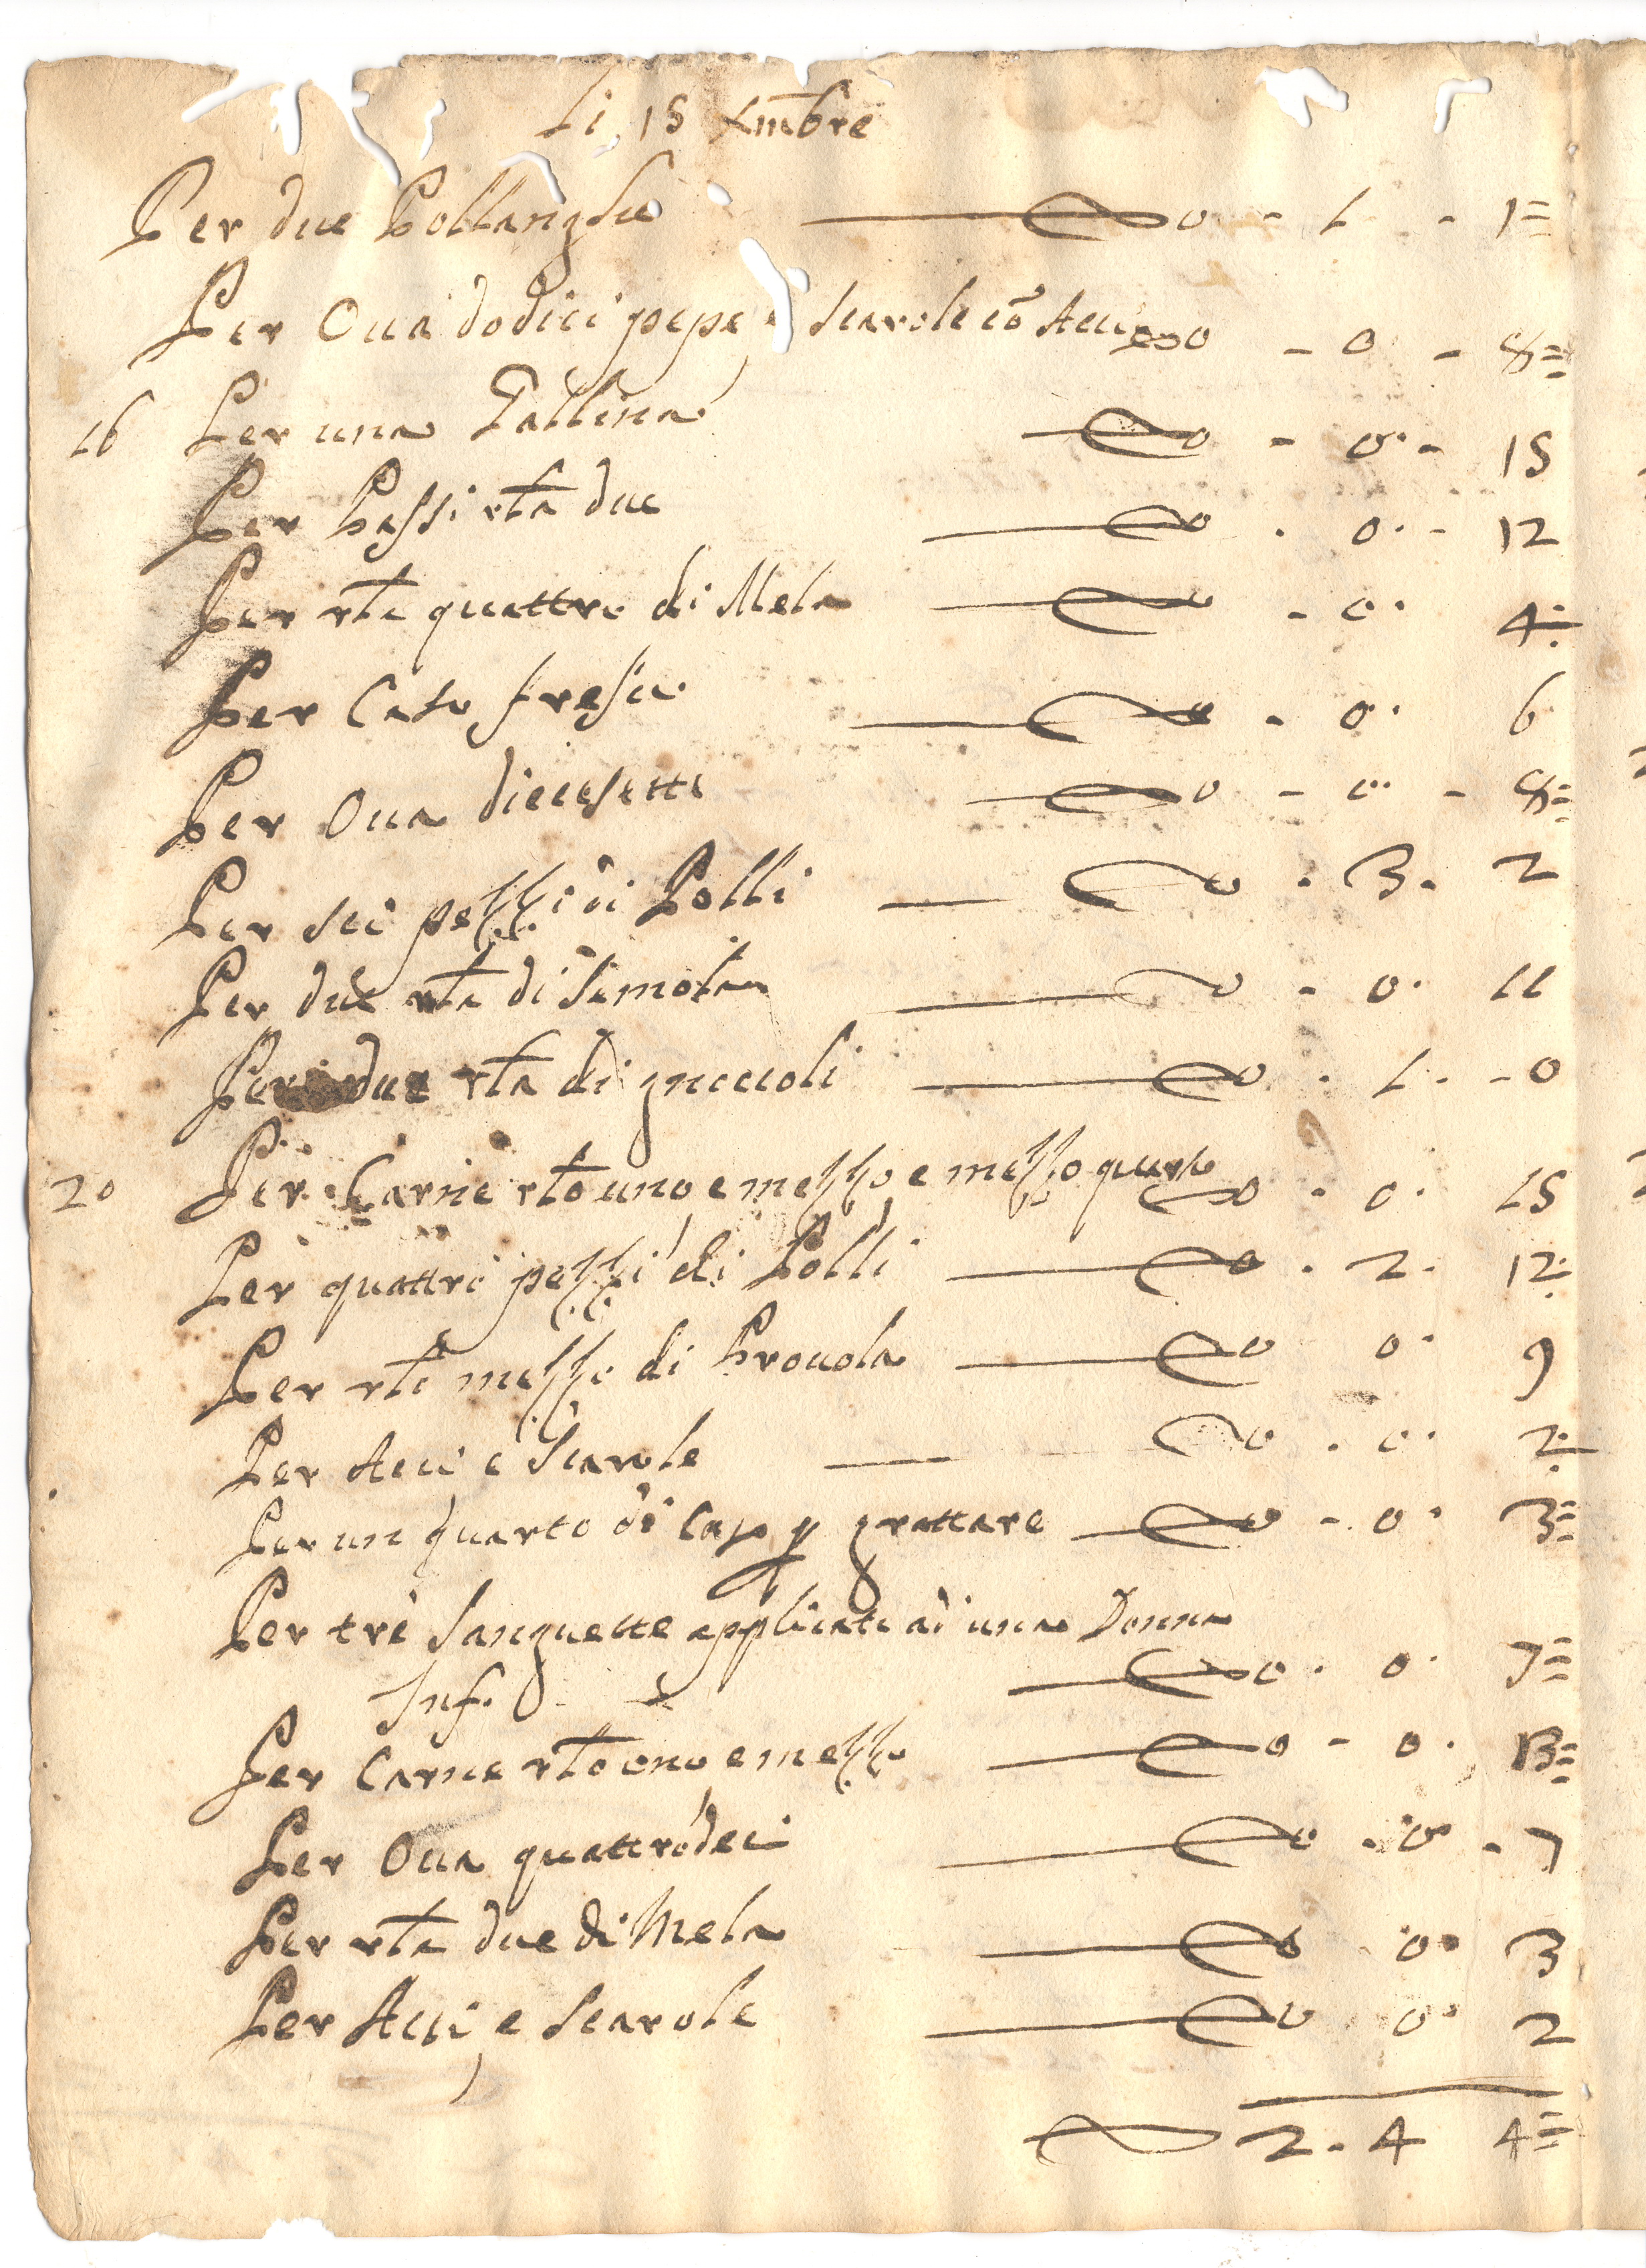 Li 15 Xmbre
Per due Pollanghe 0 - 1 - 1=
Per Oua dodici pepe e Scarole cō Acci 0 - 0 - 8=
16 Per una Gallina 0 - 0 - 15
Per Passi rta due 0 - 0 - 12
Per rta quattro di Mela 0 - 0 4
Per Caso fresco 0 - 0 6
Per Oua diecesette 0 - 0 - 8=
Per sei pezzi di Polli 0 . 3 . 2
Per due rta di Semola 0 - 0 . 11
Per due rta di gnoccoli 0 . 1 . - 0
20 Per Carne rto uno e mezzo e mezzo quarto 0 - 0 . 15
Per quattro pezzi di Polli 0 . 2 . 12
Per rto mezzo di Prouola 0 0 9
Per Acci e Scarole 0 . 0 . 2
Per un quarto di Caso p grattare 0 - 0 . 3=
Per trè Sanguette applicate ad una Donna
Inf. 0 . 0 . 7=
Per Carne rto uno e mezzo 0 - 0 . 13=
Per Oua quattordeci 0 - 0 - 7
Per rta due di Mela 0 0 3
Per Acci e Scarole 0 . 0 . 2
2 . 4 4=